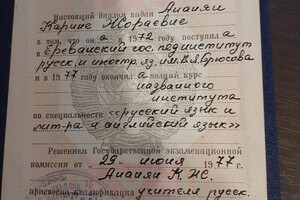 Настоящий диплом выдан Ананян
Карине Жораевне
в том, что он а в 1972 году поступил а
в Ереванский гос. пединститут
русск. и иностр. яз. им. В. Я. Брюсова
и в 1977 году окончил а полный курс
названного
института
по специальности «русский язык и
лит-ра и английский язык»
Решением Государственной экзаменационной
комиссии от 29 июня 1977 г.
Ананян К. Ж.
присвоена квалификация учителя русск.